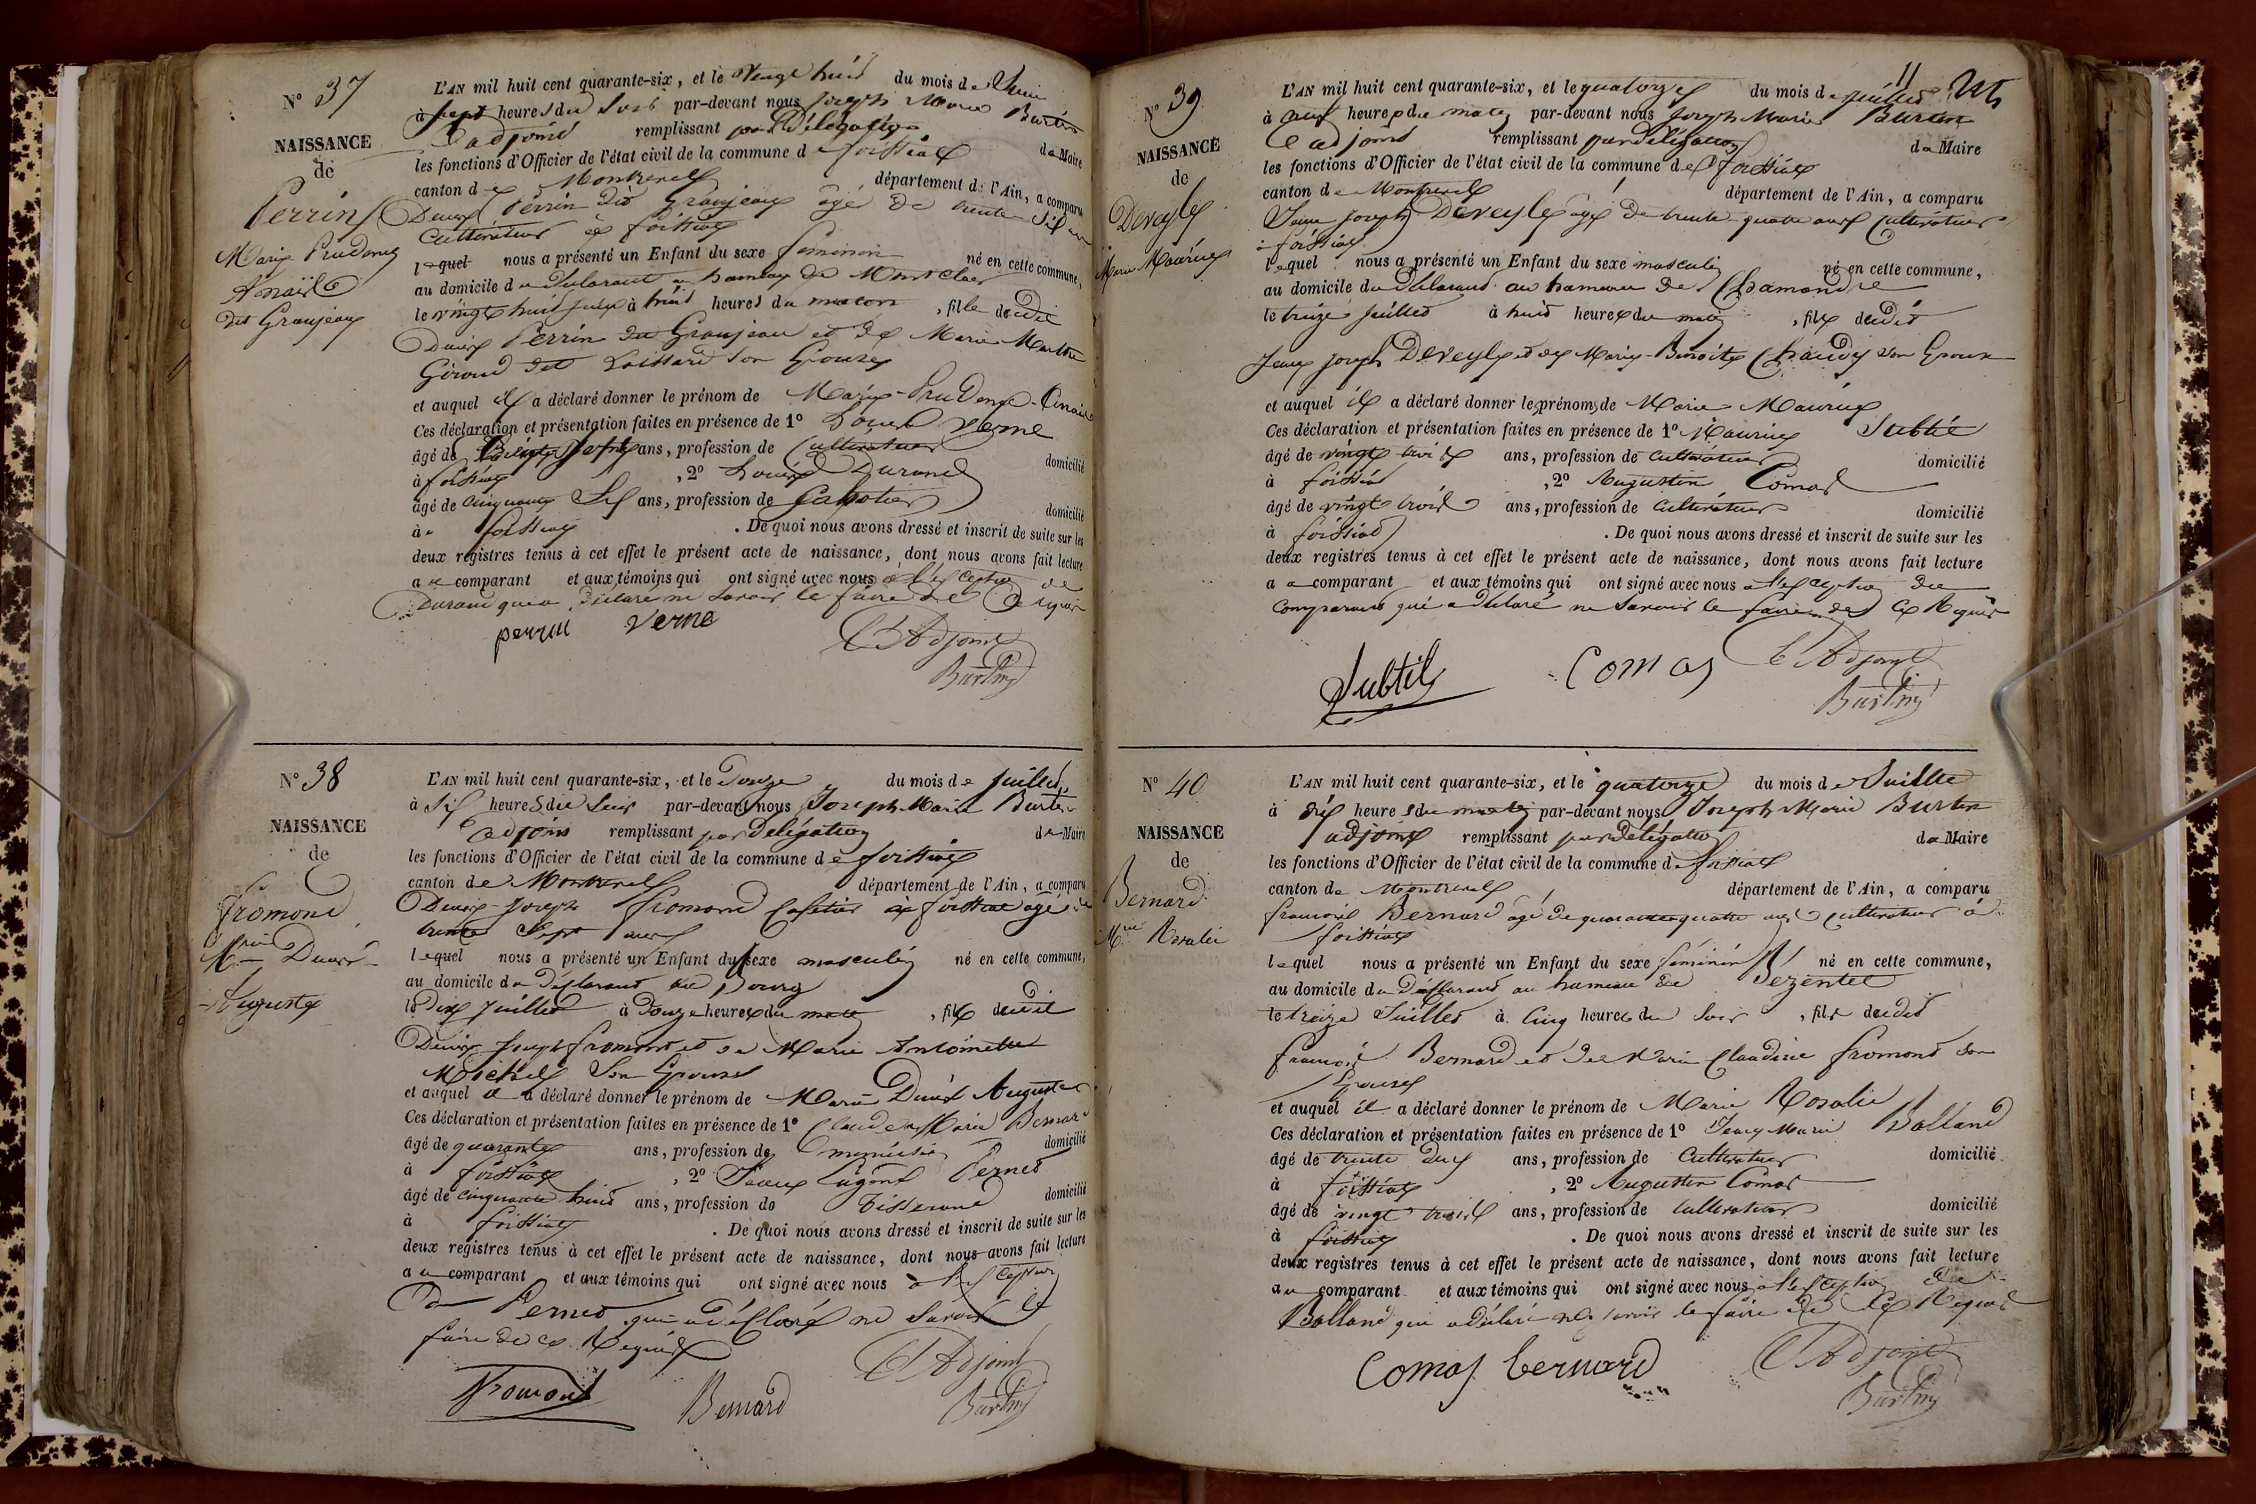 N° 37
NAISSANCE
de
Perrin
Marie Prudence
Anaïs
dit Granjean
L'AN mil huit cent quarante-six, et le Vingt huit du mois de Juin
à sept heures du soir par-devant nous Joseph Marie Burtin
adjoint remplissant par Délégation de Maire
les fonctions d'Officier de l'état civil de la commune de foissiat
canton de Montrevel département de l'Ain, a comparu
Denis Perrin dit Granjean âgé de trente six ans
Cultivateur à foissiat
lequel nous a présenté un Enfant du sexe féminin né en cette commune,
au domicile du Déclarant au hameau de Mont Clair
le vingt huit juin à huit heures du matin, fille dudit
Denis Perrin dit Granjean et de Marie
Giroud dit son Epouse
et auquel il a déclaré donner le prénom de Marie-Prudence-Anaïs
Ces déclaration et présentation faites en présence de 1° Louis Verne
âgé de ans, profession de Cultivateur domicilié
à foissiat, 2° Louis Durand
âgé de cinquante Six ans, profession de Sabotier domicilié
à foissiat. De quoi nous avons dressé et inscrit de suite sur les
deux registres tenus à cet effet le présent acte de naissance, dont nous avons fait lecture
au comparant et aux témoins qui ont signé avec nous à l'exception de
Durand qui a Déclaré ne savoir le faire de ce Requis
perrin Verne L'Adjoint
Burtin
N° 38
NAISSANCE
de
fromond
Marie Denis
Auguste
L'AN mil huit cent quarante-six, et le Douze du mois de juillet
à Six heures du Soir par-devant nous Joseph Marie Burtin
adjoint remplissant par Délégation de Maire
les fonctions d'Officier de l'état civil de la commune de foissiat
canton de Montrevel département de l'Ain, a comparu
Denis-Joseph fromond Cafetier à foissiat âgé de
trente Sept ans
lequel nous a présenté un Enfant du sexe masculin né en cette commune,
au domicile du Déclarant au Bourg
le Dix juillet à Douze heures du matin, fils dudit
Denis Joseph fromont et de Marie Antoinette
Michel Son Epouse
et auquel il a déclaré donner le prénom de Marie Denis Auguste
Ces déclaration et présentation faites en présence de 1° Claude Marie Bernard
âgé de quarante ans, profession de menuisier domicilié
à foissiat, 2° Jean Pernet
âgé de cinquante huit ans, profession de tisserand domicilié
à foissiat. De quoi nous avons dressé et inscrit de suite sur les
deux registres tenus à cet effet le présent acte de naissance, dont nous avons fait lecture
au comparant et aux témoins qui ont signé avec nous à l'exception
de Pernet qui a déclaré ne Savoir le
faire de ce Requis
fromont Bernard L'Adjoint
Burtin
11
N° 39
NAISSANCE
de
Deveyle
Marie Maurice
L'AN mil huit cent quarante-six, et le quatorze du mois de juillet
à neuf heures du matin par-devant nous Joseph Marie Burtin
adjoint remplissant par Délégation de Maire
les fonctions d'Officier de l'état civil de la commune de foissiat
canton de Montrevel département de l'Ain, a comparu
Jean Joseph Deveyle âgé de trente quatre ans Cultivateur
à foissiat
lequel nous a présenté un Enfant du sexe masculin né en cette commune,
au domicile du Déclarant au hameau de Chamandre
le treize juillet à huit heures du matin, fils dudit
Jean joseph Deveyle et de Marie-Benoite Chaudy son Epouse
et auquel il a déclaré donner les prénoms de Marie Maurice
Ces déclaration et présentation faites en présence de 1° Maurice Subtil
âgé de vingt trois ans, profession de Cultivateur domicilié
à foissiat, 2° Augustin Comas
âgé de vingt trois ans, profession de Cultivateur domicilié
à foissiat. De quoi nous avons dressé et inscrit de suite sur les
deux registres tenus à cet effet le présent acte de naissance, dont nous avons fait lecture
au comparant et aux témoins qui ont signé avec nous à l'exception du
comparant qui a Déclaré ne Savoir le faire de ce Requis
Subtil Comas L'Adjoint
Burtin
N° 40
NAISSANCE
de
Bernard
Mie Rosalie
L'AN mil huit cent quarante-six, et le quatorze du mois de Juillet
à dix heures du matin par-devant nous Joseph Marie Burtin
adjoint remplissant par Délégation de Maire
les fonctions d'Officier de l'état civil de la commune de foissiat
canton de Montrevel département de l'Ain, a comparu
françois Bernard âgé de quarante quatre ans cultivateur à
foissiat
lequel nous a présenté un Enfant du sexe féminin né en cette commune,
au domicile du Déclarant au hameau de Bézentet
le treize Juillet à Cinq heures du Soir, fille dudit
françois Bernard et de Marie Claudine fromond son
Epouse
et auquel il a déclaré donner le prénom de Marie Rosalie
Ces déclaration et présentation faites en présence de 1° Jean Marie Balland
âgé de trente deux ans, profession de Cultivateur domicilié
à foissiat, 2° Augustin Comas
âgé de vingt trois ans, profession de Cultivateur domicilié
à foissiat. De quoi nous avons dressé et inscrit de suite sur les
deux registres tenus à cet effet le présent acte de naissance, dont nous avons fait lecture
au comparant et aux témoins qui ont signé avec nous à l'exception de
Balland qui a déclaré ne savoir le faire de ce Requis
Comas bernard L'Adjoint
Burtin